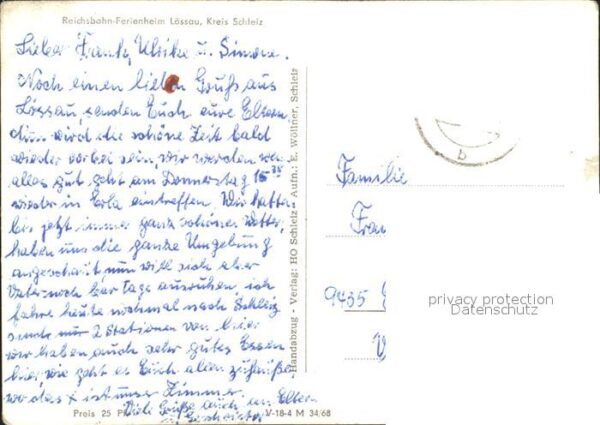 Reichsbahn-Ferienheim Lössau, Kreis Schleiz
Lieber Frank, Ulrike u. Simone.
Noch einen lieben Gruß aus
Lössau, senden Euch eure Eltern
nun wird die schöne Zeit bald
wieder vorbei sein, wir werden wen
alles gut geht am Donnerstag
wieder in Erla eintreffen. Wir hatten
bis jetzt immer ganz schönes Wetter,
haben uns die ganze Umgebung
angeschaut, nun will sich aber
Vater noch paar Tage ausruhen, ich
fahre heute nochmal nach Schleiz
sind nur 2 Stationen von hier
wir haben auch sehr gutes Essen
hier, wie geht es Euch allen zuhause
wo das x ist unser Zimmer.
Viele Grüße auch an
Preis 25
V-18-4 M 34/68
Handabzug - Verlag: HO Schleiz - Aufn.: E. Wöllner, Schleiz
b
Familie
Frau
9435
privacy protection
Datenschutz